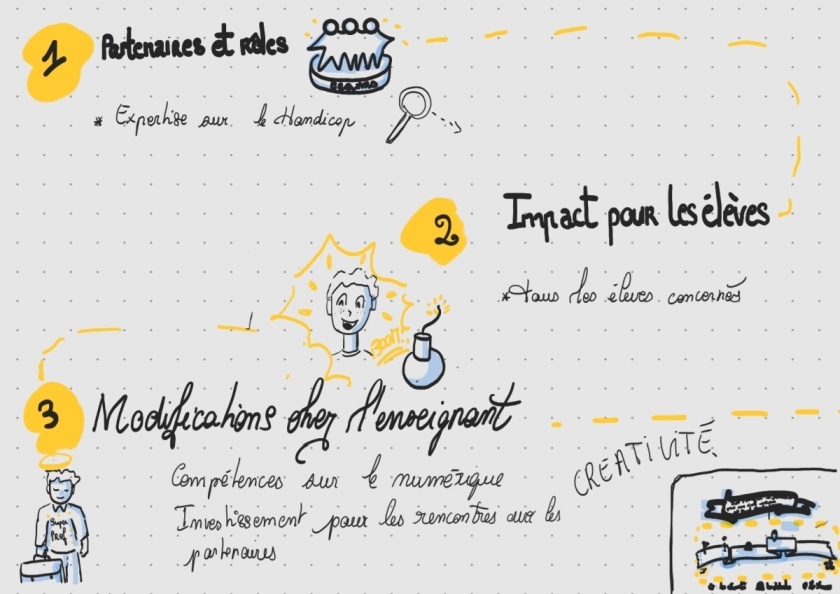 1
Partenaires et rôles
* Expertise sur le Handicap
2
Impact pour les élèves
* tous les élèves concernés
BOOM!
3
Modifications chez l'enseignant
Compétences sur le numérique
Investissement pour les rencontres avec les
partenaires
CRÉATIVITÉ
Super
Prof